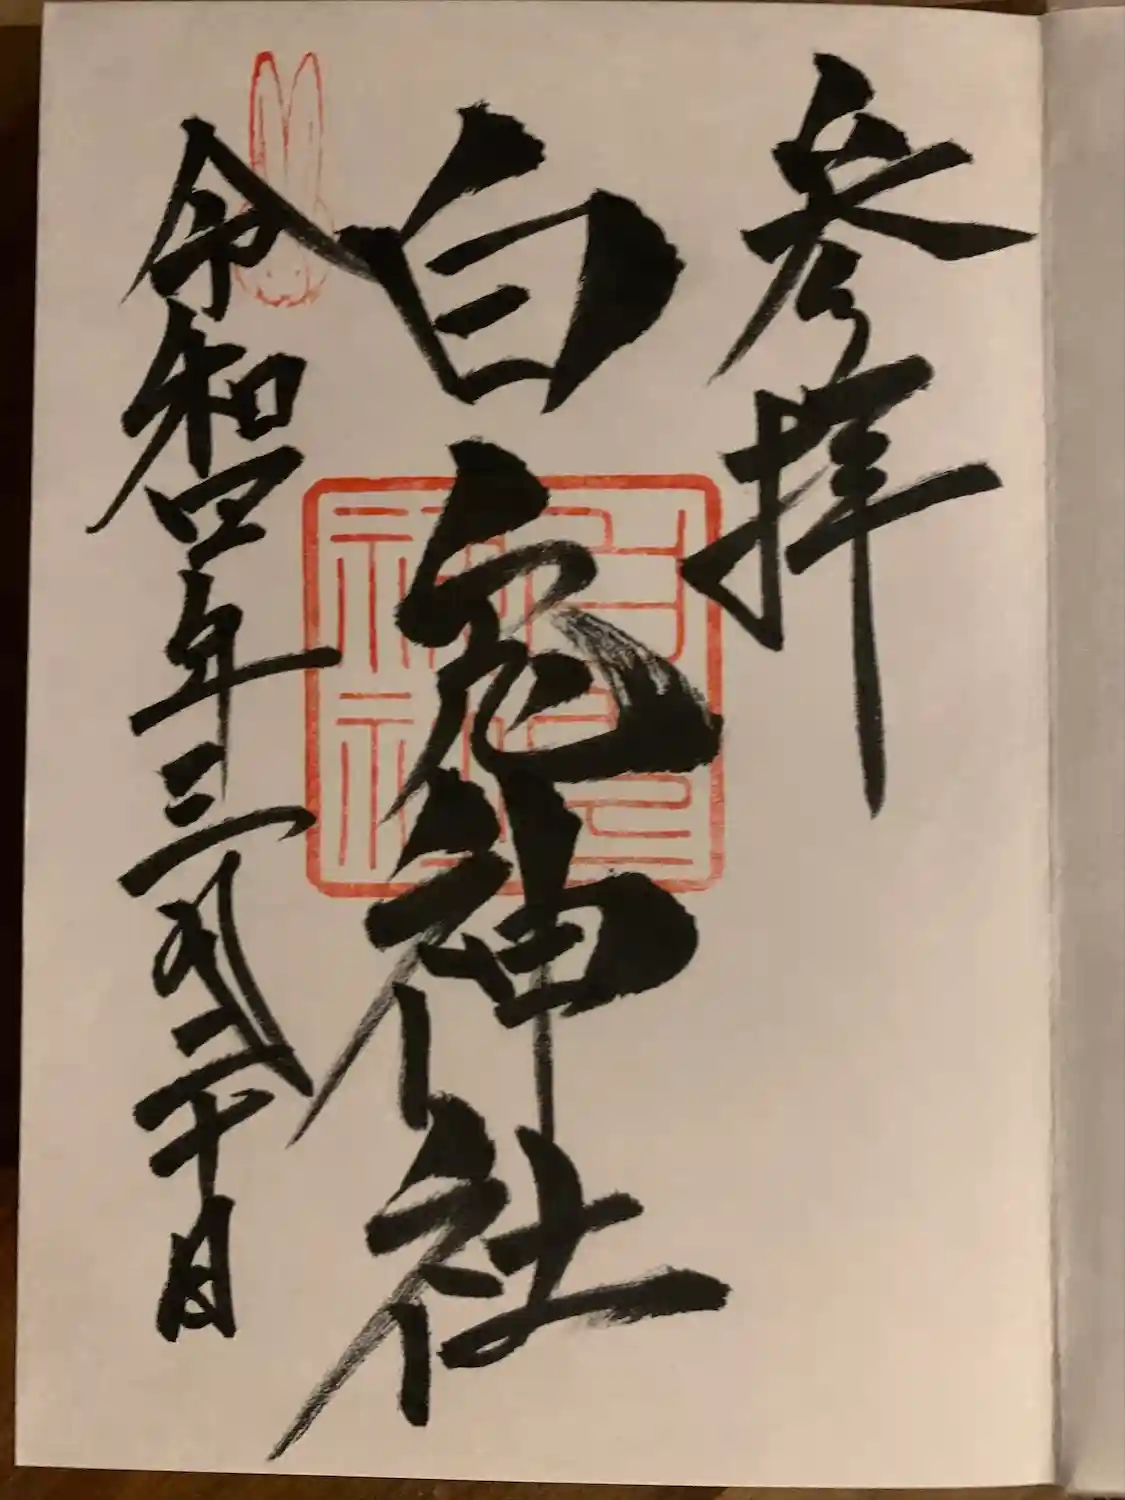 参拝
白兎神社
令和四年三月二十日
白兎神社